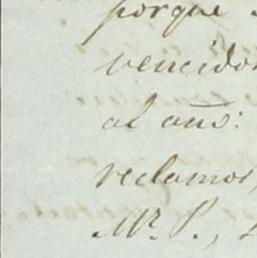 porque
vencido
al
reclamos,
Mr. P.,